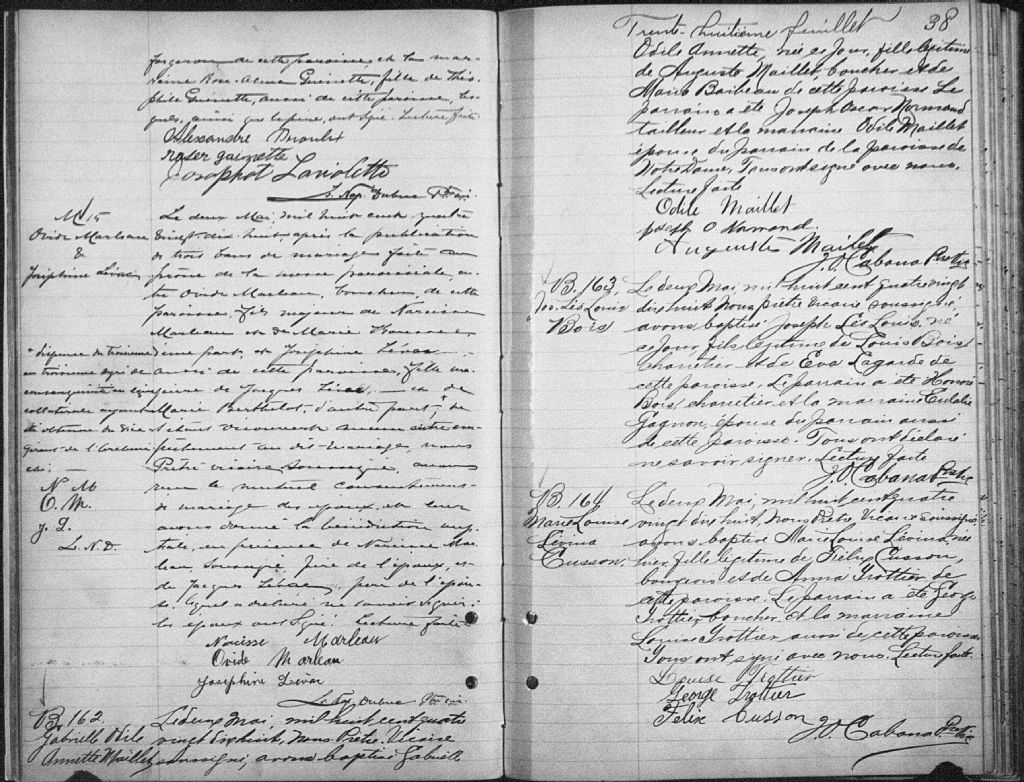 forgeron de cette paroisse, et la mar-
raine Rose-Alma Guinette, fille de Théo-
phile Guinette, aussi de cette paroisse, les-
quels, ainsi que le père, ont signé. Lecture faite
Alexandre
Josaphat Laviolette
L. Nap. Dubuc Ptre vic.
M 15
Ovide Marleau
&
Joséphine
Le deux Mai, mil huit cent quatre
vingt-dix-huit, après la publication
de trois bans de mariage faite au
prône de la messe paroissiale en-
tre Ovide Marleau, boucher, de cette
paroisse, fils majeur de Narcisse
Marleau et de Marie
d'une part, et Joséphine
aussi de cette paroisse, fille ma-
jeure de Jacques et de
Marie Berthelot, d'autre part,
+ dispense du troisième
au troisième degré de
consanguinité en ligne
collatérale ayant
été obtenue de
de l'
etc. —
N. M
O. M.
J. L.
L. N. D.
ne s'étant découvert aucun autre em-
pêchement au dit mariage, nous
Prêtre vicaire soussigné, avons
reçu le mutuel consentement
de mariage des époux, et leur
avons donné la bénédiction nup-
tiale, en présence de Narcisse Mar-
leau, père de l'époux, et
de Jacques père de l'épou-
se, lequel a déclaré ne savoir signer;
les époux ont signé. Lecture faite
Narcisse Marleau
Ovide Marleau
Joséphine
L. Nap. Dubuc Ptre vic.
B. 162
Gabrielle Odile
Annette Maillet
Le deux Mai, mil huit cent quatre
vingt dix huit, Nous Prêtre Vicaire
soussigné, avons baptisé Gabrielle
Trent-huitième feuillet 38
Odile Annette, née ce jour, fille légitime
de Auguste Maillet, boucher et de
Marie Baibeau de cette paroisse Le
parrain a été Joseph Oscar Normand
tailleur et la marraine Odile Maillet
épouse du parrain de la paroisse de
Notre Dame, Tous ont signé avec nous.
Lecture faite
Odile Maillet
Joseph O Normand
Auguste Maillet
J. O. Cabana Prêtre
B. 163
Jos. Léo Louis
Bois
Le deux Mai, mil huit cent quatre vingt
dix huit, Nous prêtre vicaire soussigné
avons baptisé Joseph Léo Louis, né
ce jour, fils légitime de Louis Bois
charretier et de Eva Legarde de
cette paroisse. Le parrain a été Honoré
Bois, charretier et la marraine Eulalie
Gagnon, épouse du parrain aussi
de cette paroisse. Tous ont déclaré
ne savoir signer. Lecture faite
J. O. Cabana Prêtre
B. 164
Marie Louise
Lévina
Cusson
Le deux Mai, mil huit cent quatre
vingt dix huit, Nous Prêtre, Vicaire soussigné
avons baptisé Marie Louise Lévina, née
hier, fille légitime de Félix Cusson,
bourgeois et de Anna Trottier de
cette paroisse. Le parrain a été George
Trottier, boucher et la marraine
Louise Trottier aussi de cette paroisse
Tous ont signé avec nous. Lecture faite.
Louise Trottier
George Trottier
Felix Cusson
J. O. Cabana Prêtre